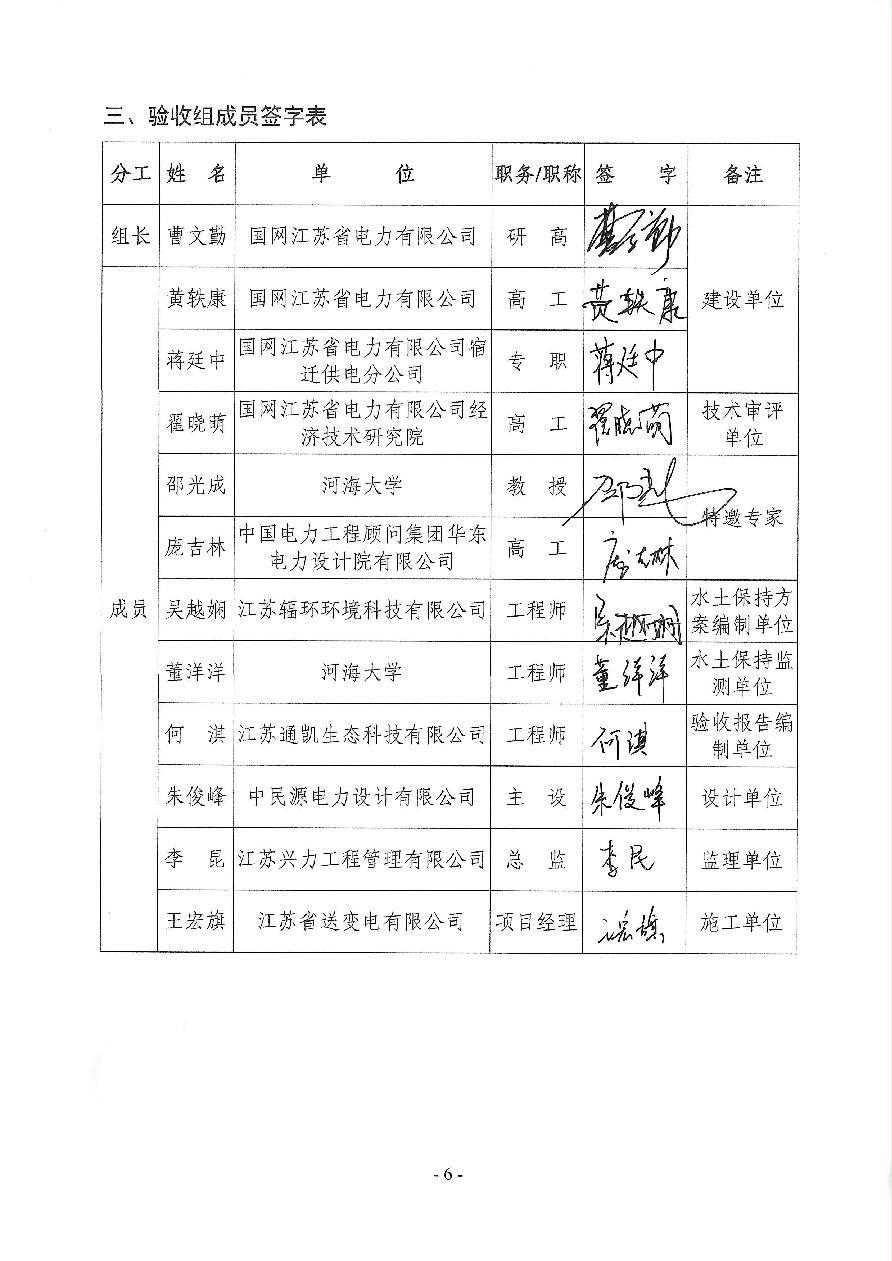 三、验收组成员签字表
分工 姓 名 单 位 职务/职称 签 字 备注
组长 曹文勤 国网江苏省电力有限公司 研 高 曹文勤 建设单位
成员
黄轶康 国网江苏省电力有限公司 高 工 黄轶康
蒋廷中 国网江苏省电力有限公司宿
迁供电分公司 专 职 蒋廷中
翟晓萌 国网江苏省电力有限公司经
济技术研究院 高 工 翟晓萌 技术审评
单位
邵光成 河海大学 教 授 特邀专家
庞吉林 中国电力工程顾问集团华东
电力设计院有限公司 高 工 庞吉林
吴越娴 江苏辐环环境科技有限公司 工程师 吴越娴 水土保持方
案编制单位
董洋洋 河海大学 工程师 董洋洋 水土保持监
测单位
何 淇 江苏通凯生态科技有限公司 工程师 何淇 验收报告编
制单位
朱俊峰 中民源电力设计有限公司 主 设 朱俊峰 设计单位
李 昆 江苏兴力工程管理有限公司 总 监 监理单位
王宏旗 江苏省送变电有限公司 项目经理 施工单位
- 6 -